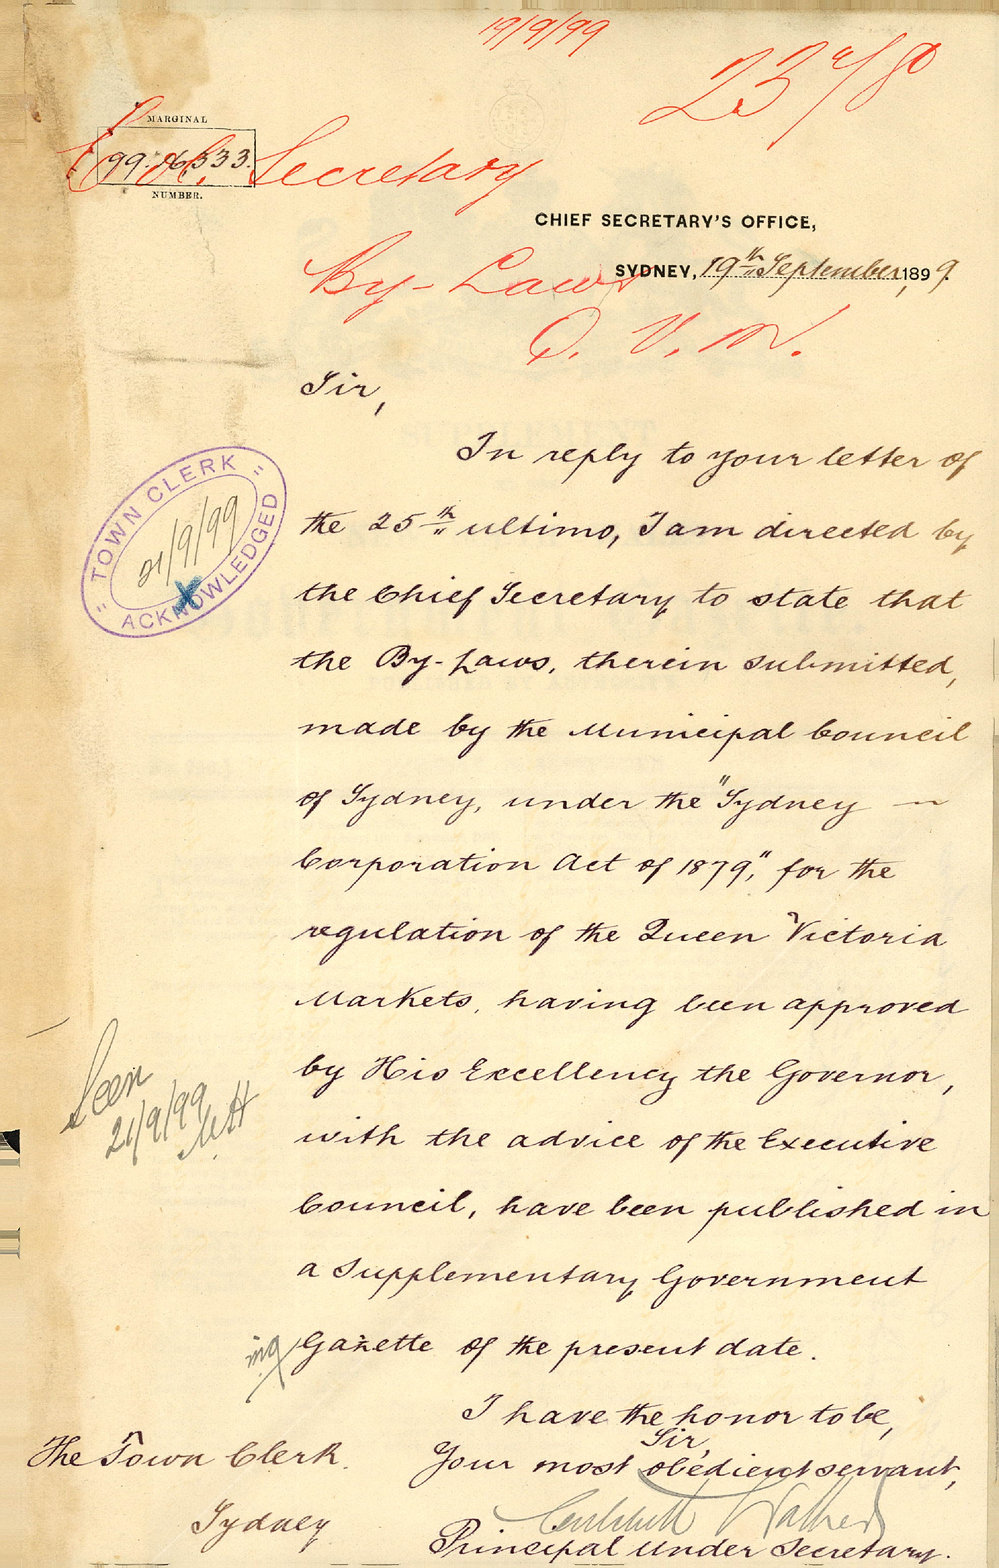 19/9/99
23
MARGINAL
99.16533.
NUMBER.
Col. Secretary
CHIEF SECRETARY'S OFFICE,
By-Laws
SYDNEY, 19th September, 1899.
Q. V. M.
Sir,
In reply to your letter of
the 25th ultimo, I am directed by
TOWN CLERK
21/9/99
ACKNOWLEDGED
the Chief Secretary to state that
the By-Laws, therein submitted,
made by the Municipal Council
of Sydney, under the "Sydney
Corporation Act of 1879," for the
regulation of the Queen Victoria
Markets, having been approved
by His Excellency the Governor,
Seen
21/9/99
with the advice of the Executive
Council, have been published in
a Supplementary Government
Gazette of the present date.
I have the honor to be,
Sir,
Your most obedient servant,
The Town Clerk.
Sydney
Critchett Walker
Principal Under Secretary.